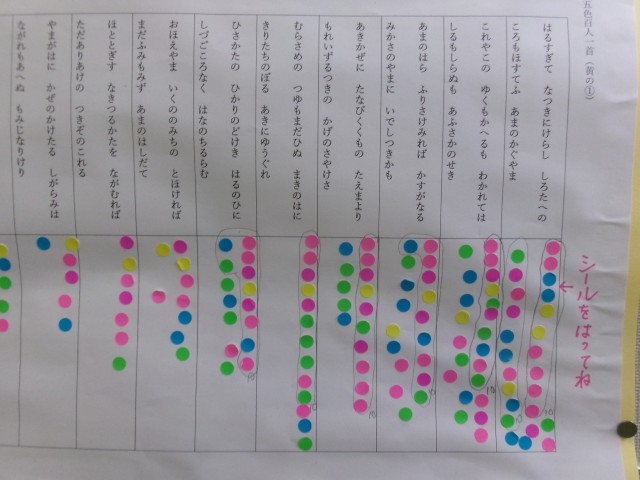 五色百人一首(黄の①)
はるすぎて なつきにけらし しろたへの
ころもほすてふ あまのかぐやま
これやこの ゆくもかへるも わかれては
しるもしらぬも あふさかのせき
あまのはら ふりさけみれば かすがなる
みかさのやまに いでしつきかも
あきかぜに たなびくくもの たえまより
もれいずるつきの かげのさやけさ
むらさめの つゆもまだひぬ まきのはに
きりたちのぼる あきにゆうぐれ
ひさかたの ひかりのどけき はるのひに
しづごころなく はなのちるらむ
おほえやま いくののみちの とほければ
まだふみもみず あまのはしだて
ほととぎす なきつるかたを ながむれば
ただありあけの つきぞのこれる
やまがはに かぜのかけたる しがらみは
ながれもあへぬ もみじなりけり
←シールをはってね
10
10
10
10
10
10